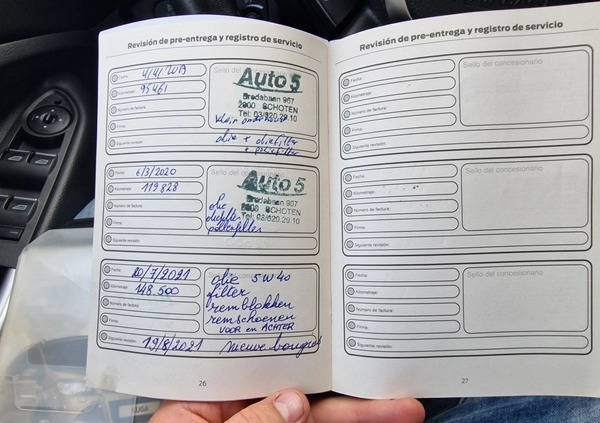 Revisión de pre-entrega y registro de servicio
Fecha: 4/4/2019
Kilometraje: 95461
Número de factura:
Firma:
Siguiente revisión:
Sello del
Auto 5
Bredabaan 967
2900 SCHOTEN
Tel: 03/620.29.10
klein onderhoud
olie + oliefilter
Fecha: 6/3/2020
Kilometraje: 119828
Número de factura:
Firma:
Siguiente revisión:
Auto 5
Bredabaan 967
SCHOTEN
Tel: 03/620.29.10
olie
oliefilter
pollenfilter
Fecha: 20/7/2021
Kilometraje: 148 500
Número de factura:
Firma:
Siguiente revisión: 19/8/2021
olie 5W40
filter
remblokken
remschoenen
VOOR en ACHTER
nieuwe bougies
26
Revisión de pre-entrega y registro de servicio
Fecha:
Kilometraje:
Número de factura:
Firma:
Siguiente revisión:
Sello del concesionario
Fecha:
Kilometraje:
Número de factura:
Firma:
Siguiente revisión:
Sello del concesionario
Fecha:
Kilometraje:
Número de factura:
Firma:
Siguiente revisión:
Sello del concesionario
27